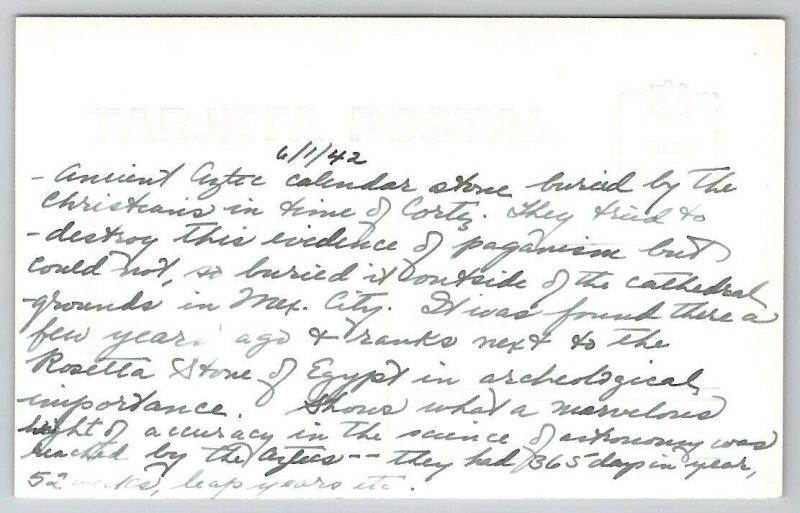 TARJETA POSTAL
6/1/42
- Ancient Aztec calendar stone buried by the
Christians in time of Cortez. They tried to
- destroy this evidence of paganism but
could not, so buried it outside of the cathedral
- grounds in Mex. City. It was found there a
few years ago & ranks next to the
Rosetta Stone of Egypt in archeological
importance. Shows what a marvelous
hight of accuracy in the science of astronomy was
reached by the Aztecs -- they had 365 days in year,
52 weeks, leap years etc.